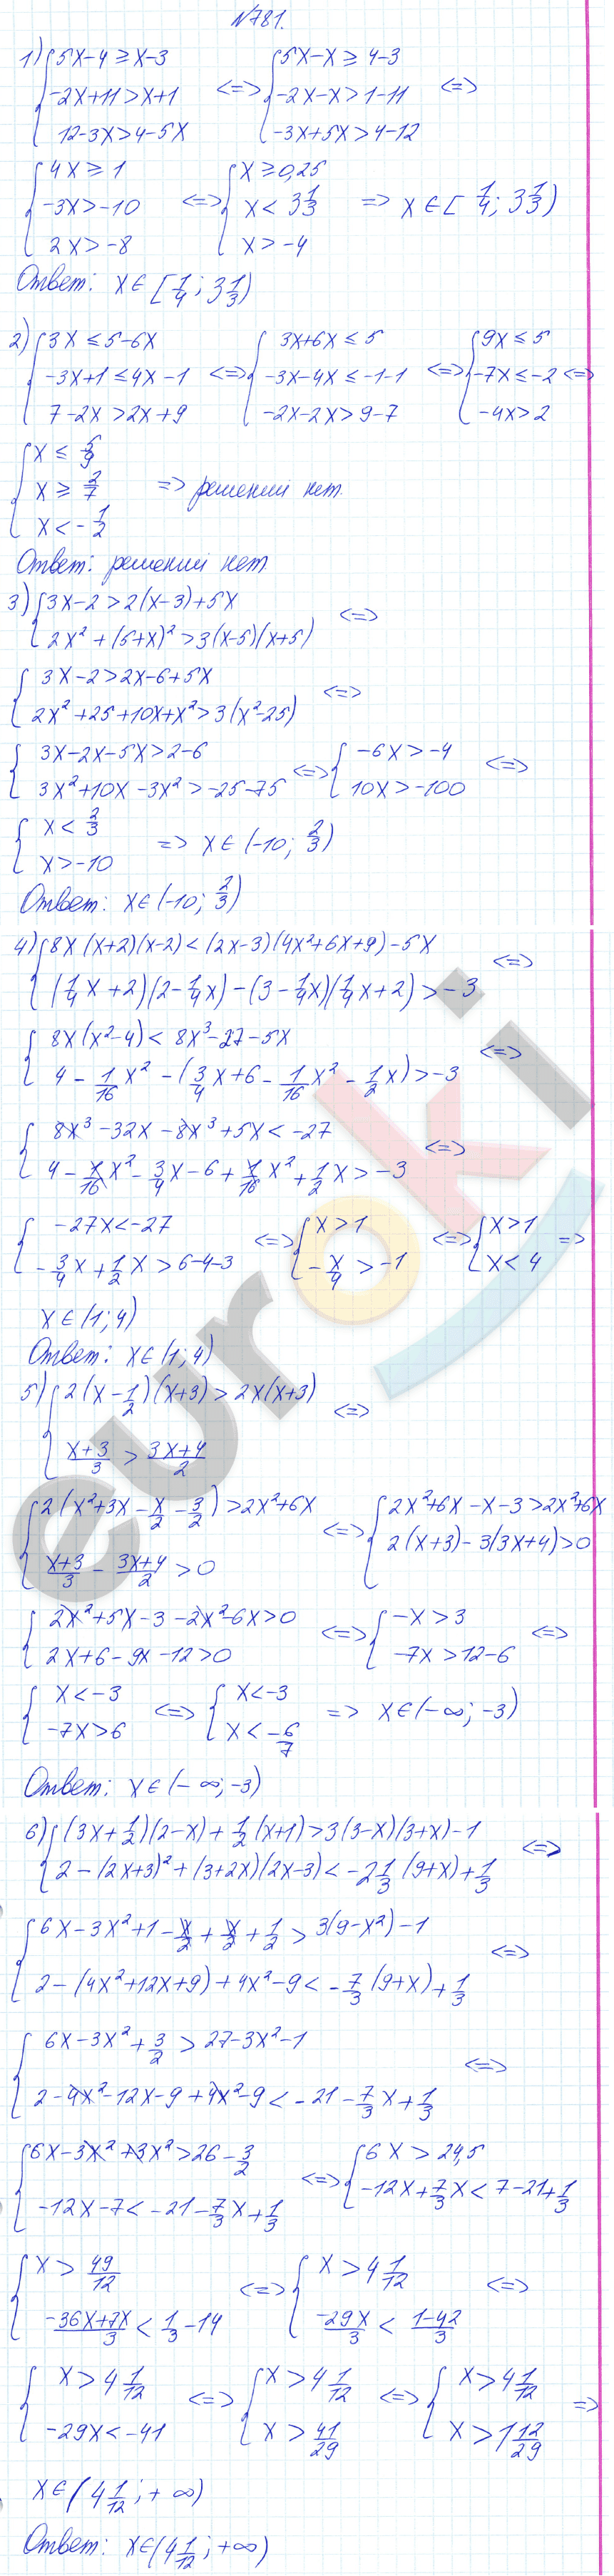 №781.
1) { 5x-4 ≥ x-3 <=> { 5x-x ≥ 4-3 <=>
-2x+11 > x+1 -2x-x > 1-11
12-3x > 4-5x -3x+5x > 4-12
{ 4x ≥ 1 <=> { x ≥ 0,25 => x ∈ [1/4; 3 1/3)
-3x > -10 x < 3 1/3
2x > -8 x > -4
Ответ: x ∈ [1/4; 3 1/3)
2) { 3x ≤ 5-6x <=> { 3x+6x ≤ 5 <=> { 9x ≤ 5 <=>
-3x+1 ≤ 4x-1 -3x-4x ≤ -1-1 -7x ≤ -2
7-2x > 2x+9 -2x-2x > 9-7 -4x > 2
{ x ≤ 5/9
x ≥ 2/7 => решений нет.
x < -1/2
Ответ: решений нет
3) { 3x-2 > 2(x-3)+5x <=>
2x²+(5+x)² > 3(x-5)(x+5)
{ 3x-2 > 2x-6+5x <=>
2x²+25+10x+x² > 3(x²-25)
{ 3x-2x-5x > 2-6 <=> { -6x > -4 <=>
3x²+10x-3x² > -25-75 10x > -100
{ x < 2/3 => x ∈ (-10; 2/3)
x > -10
Ответ: x ∈ (-10; 2/3)
4) { 8x(x+2)(x-2) < (2x-3)(4x²+6x+9)-5x <=>
(1/4x+2)(2-1/4x)-(3-1/4x)(1/4x+2) > -3
{ 8x(x²-4) < 8x³-27-5x <=>
4-1/16x²-(3/4x+6-1/16x²-1/2x) > -3
{ 8x³-32x-8x³+5x < -27 <=>
4-1/16x²-3/4x-6+1/16x²+1/2x > -3
{ -27x < -27 <=> { x > 1 <=> { x > 1 =>
-3/4x+1/2x > 6-4-3 -x/4 > -1 x < 4
x ∈ (1; 4)
Ответ: x ∈ (1; 4)
5) { 2(x-1/2)(x+3) > 2x(x+3) <=>
(x+3)/3 > (3x+4)/2
{ 2(x²+3x-x/2-3/2) > 2x²+6x <=> { 2x²+6x-x-3 > 2x²+6x
(x+3)/3-(3x+4)/2 > 0 2(x+3)-3(3x+4) > 0
{ 2x²+5x-3-2x²-6x > 0 <=> { -x > 3 <=>
2x+6-9x-12 > 0 -7x > 12-6
{ x < -3 <=> { x < -3 => x ∈ (-∞; -3)
-7x > 6 x < -6/7
Ответ: x ∈ (-∞; -3)
6) { (3x+1/2)(2-x)+1/2(x+1) > 3(3-x)(3+x)-1 <=>
2-(2x+3)²+(3+2x)(2x-3) < -2 1/3(9+x)+1/3
{ 6x-3x²+1-x/2+x/2+1/2 > 3(9-x²)-1 <=>
2-(4x²+12x+9)+4x²-9 < -7/3(9+x)+1/3
{ 6x-3x²+3/2 > 27-3x²-1 <=>
2-4x²-12x-9+4x²-9 < -21-7/3x+1/3
{ 6x-3x²+3x² > 26-3/2 <=> { 6x > 24,5
-12x-7 < -21-7/3x+1/3 -12x+7/3x < 7-21+1/3
{ x > 49/12 <=> { x > 4 1/12 <=>
(-36x+7x)/3 < 1/3-14 -29x/3 < (1-42)/3
{ x > 4 1/12 <=> { x > 4 1/12 <=> { x > 4 1/12 =>
-29x < -41 x > 41/29 x > 1 12/29
x ∈ (4 1/12; +∞)
Ответ: x ∈ (4 1/12; +∞)
euroki